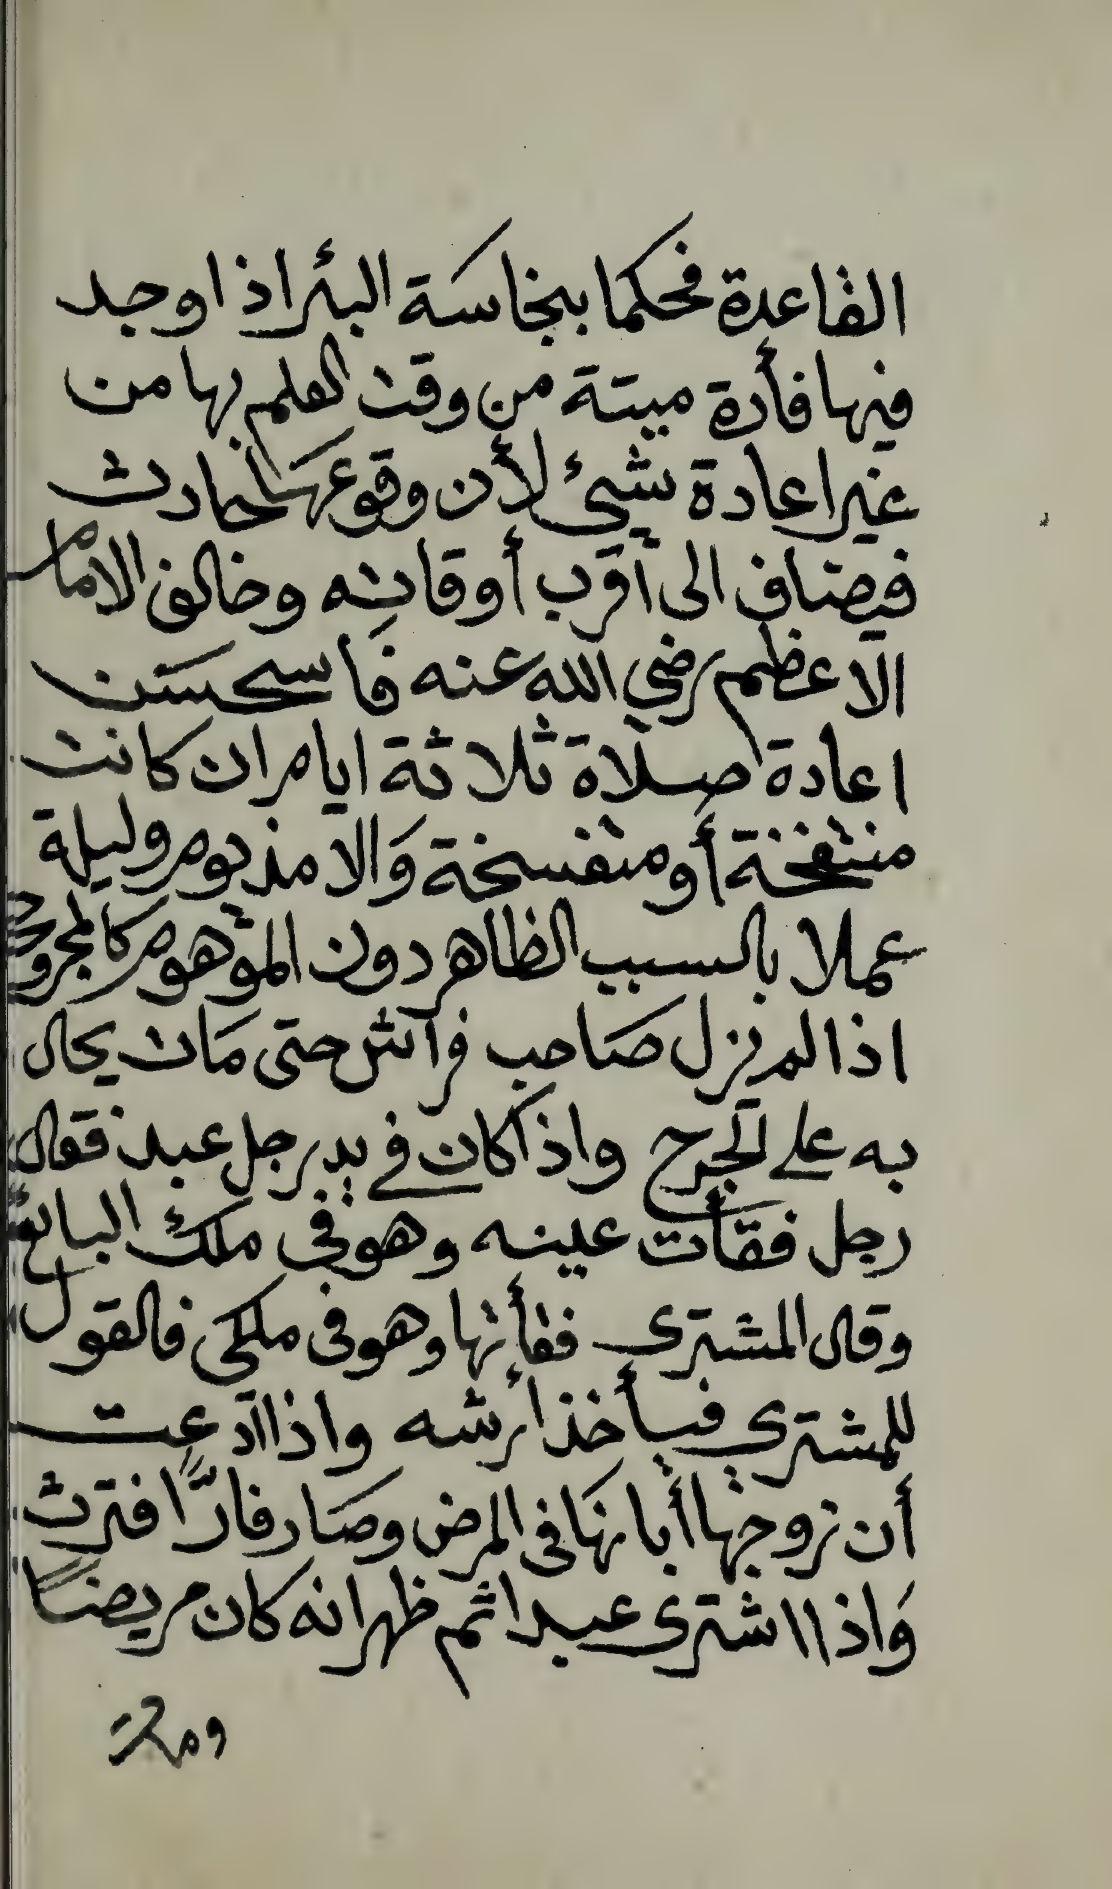 القاعدة فحكما بنجاسة البئر اذا وجد
فيها فأرة ميتة من وقت العلم بها من
غير اعادة شيئ لأن وقوعها حادث
فيضاف الى أقرب أوقاته وخالف الامام
الاعظم رضي الله عنه فاسحسن
اعادة صلاة ثلاثة ايام ان كانت
منتفخة أو متفسخة والا مذ يوم وليلة
عملا بالسبب الظاهر دون الموهوم كالمجروح
اذا لم يزل صاحب فراش حتى مات يحال
به على الجرح واذا كان في يد رجل عبد فقال
رجل فقأت عينه وهو في ملك البائع
وقال المشترى فقأتها وهو في ملكي فالقول
للمشتري فيأخذ أرشه واذا ادعت
أن زوجها أبانها فى المرض وصار فارًّا فترث
واذا اشترى عبدا ثم ظهر انه كان مريضًا